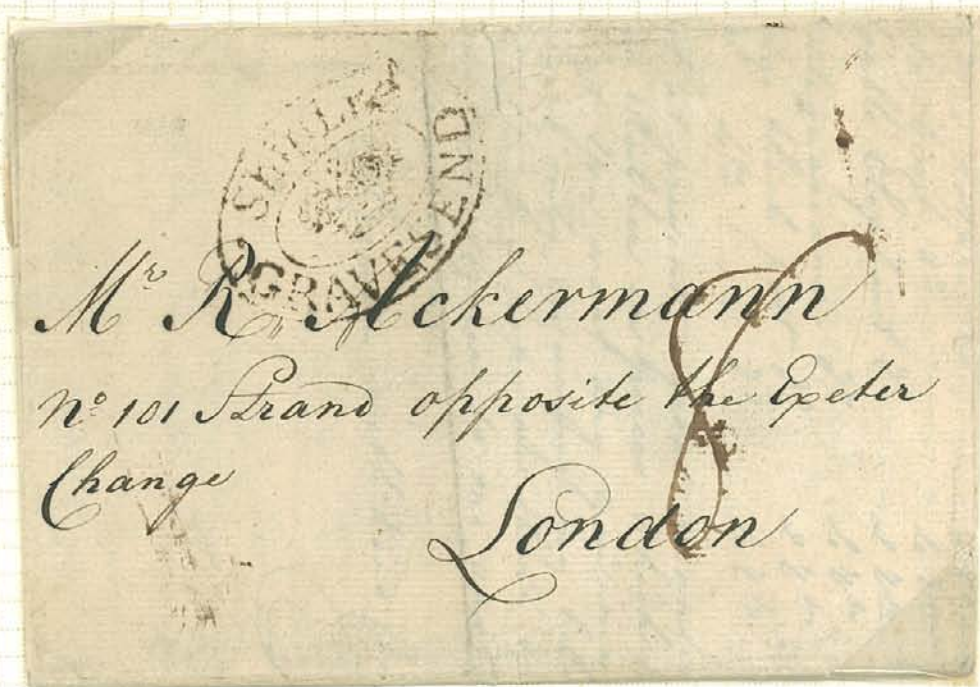 SHIP LRE
GRAVESEND
Mr R Ackermann
No 101 Strand opposite the Exeter
Change
London
8